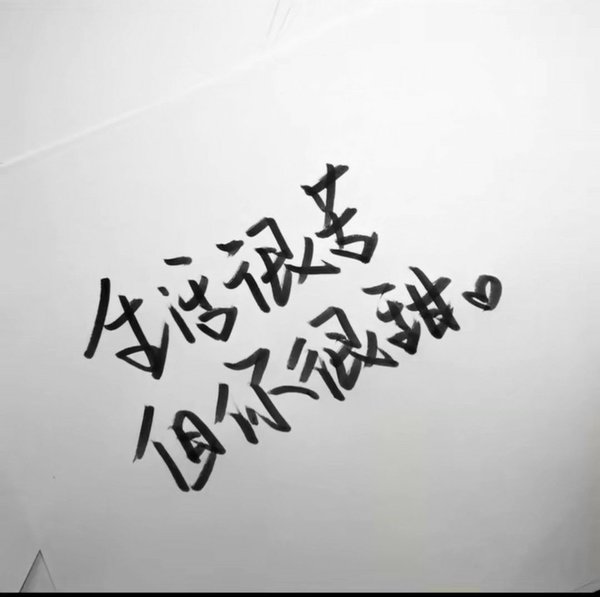 生活很苦
但你很甜